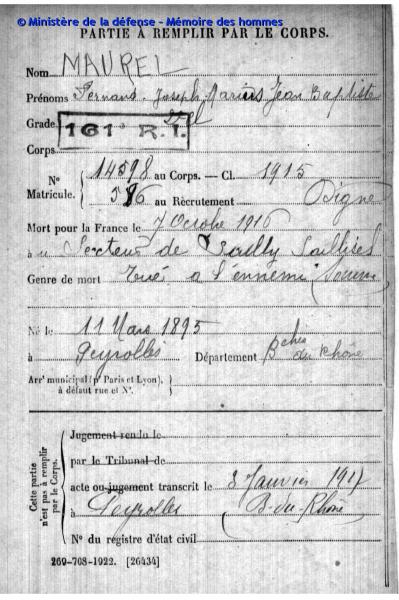 © Ministère de la défense - Mémoire des hommes
PARTIE À REMPLIR PAR LE CORPS.
Nom MAUREL
Prénoms Fernand Joseph Marius Jean Baptiste
Grade
161e R.I.
Corps
Nº Matricule. { 14598 au Corps. — Cl. 1915
586 au Recrutement Digne
Mort pour la France le 7 Octobre 1916
à Secteur de Sailly Saillisel
Genre de mort Tué à l'ennemi (Somme)
Né le 11 Mars 1895
à Peyrolles Département Bches du Rhône
Arrt municipal (pr Paris et Lyon), à défaut rue et Nº.
Cette partie n'est pas à remplir par le Corps.
Jugement rendu le
par le Tribunal de
acte ou jugement transcrit le 3 Janvier 1917
à Peyrolles (B.-du-Rhône)
Nº du registre d'état civil
269-708-1922. [26434]